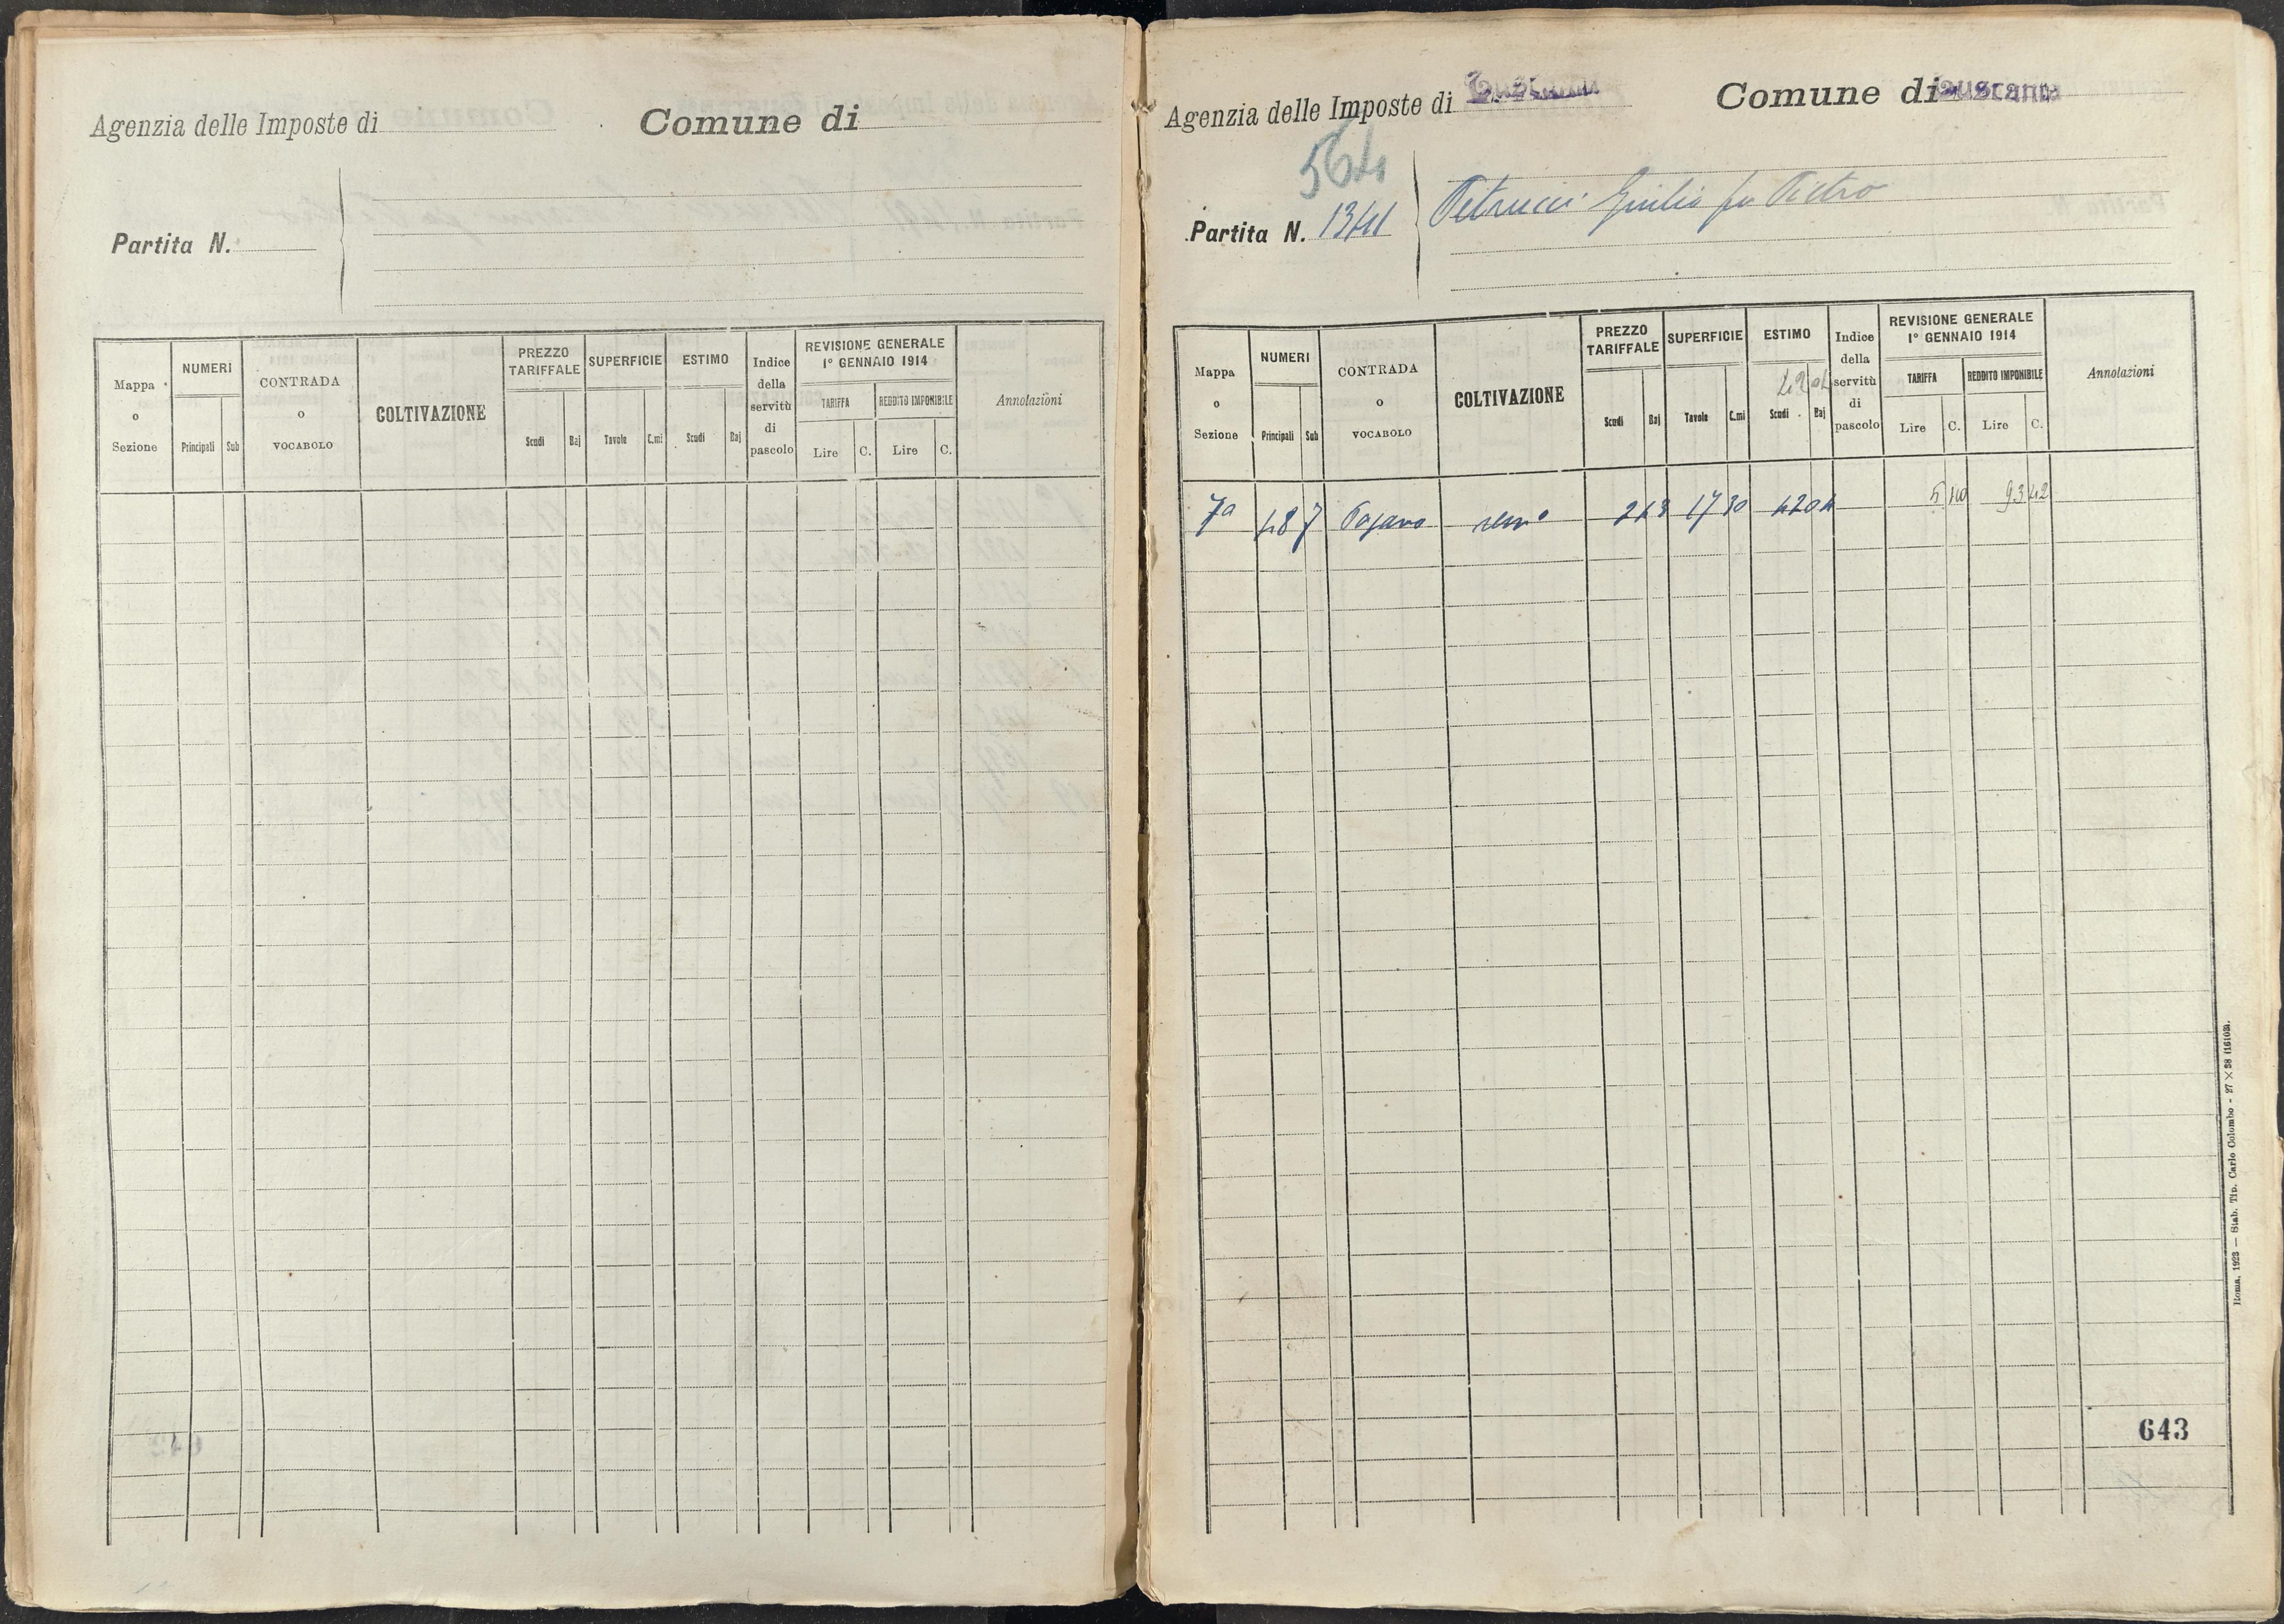 Agenzia delle Imposte di
Comune di
Partita N.
Mappa o Sezione
NUMERI
Principali Sub
CONTRADA o VOCABOLO
COLTIVAZIONE
PREZZO TARIFFALE
Scudi Baj
SUPERFICIE
Tavole C.mi
ESTIMO
Scudi Baj
Indice della servitù di pascolo
REVISIONE GENERALE
1° GENNAIO 1914
TARIFFA
Lire C.
REDDITO IMPONIBILE
Lire C.
Annotazioni
Agenzia delle Imposte di Tuscania
Comune di Tuscania
564
Partita N. 1341
Petrucci Giulio fu Pietro
Mappa o Sezione
NUMERI
Principali Sub
CONTRADA o VOCABOLO
COLTIVAZIONE
PREZZO TARIFFALE
Scudi Baj
SUPERFICIE
Tavole C.mi
ESTIMO
42 04
Scudi Baj
Indice della servitù di pascolo
REVISIONE GENERALE
1° GENNAIO 1914
TARIFFA
Lire C.
REDDITO IMPONIBILE
Lire C.
Annotazioni
7a 487 243 17 30 42 04 5 40 93 42
643
Roma, 1923 — Stab. Tip. Carlo Colombo - 27 × 38 (1610).